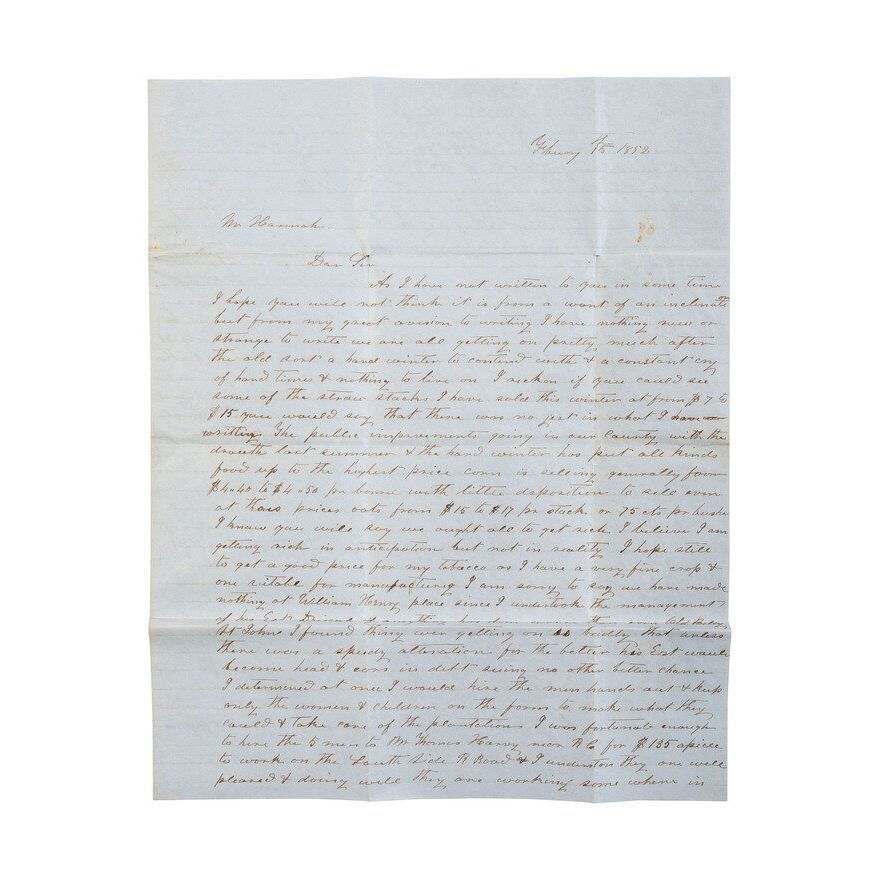 Febuary 15th 1852
Mr Hannah
Dar Sir
As I have not written to you in some time
I hope you will not think it is from a want of an inclinati
but from my great avesion to writing I have nothing new or
strange to write we are all getting on pretty much after
the old sort a hard winter to contend with & a constant cry
of hard times & nothing to live on I reckon if you could see
some of the straw stacks I have sold this winter at from $7 to
$15 you would say that there was no jest in what I have
writting The public improvements going in our County with the
drouth last summer & the hard winter has put all kinds
food up to the highest price corn is selling generally from
$4.40 to $4.50 pr with little disposition to sell even
at prices oats from $15 to $17 pr stack or 75 cts pr
I know you will say we ought all to get rich I believe I am
getting rich in anticipation but not in reality I hope still
to get a good price for my tobacco as I have a very fine crop &
one for manufacturing I am sorry to say we have made
nothing at William Henry place since I undertook the management
of his Est
At Johns I found thing wer getting on so badly that unless
there was a speedy alteration for the better his Est would
become head & ears in debt seeing no other better chance
I determined at once I would hire the men hands out & keep
only the women & children on the farm to make what they
could & take care of the plantations I was fortunate enough
to hire the 5 men to Mr Thomas Harvy near for $135 apiece
to work on the South Side R Road & I understan they are well
pleased & doing well they are working some where in